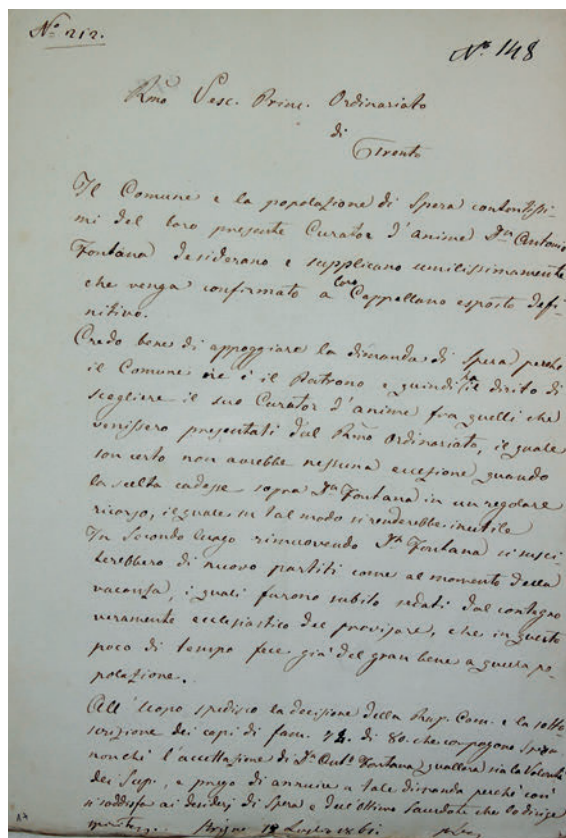 No 212.
No 148
Rmo Vesc. Princ. Ordinariato
di
Trento
Il Comune e la popolazione di Spera contentissi-
mi del loro presente Curator d'anime Dn Antonio
Fontana desiderano e supplicano umilissimamente
che venga confermato a loro Cappellano esposto defi-
nitivo.
Credo bene di appoggiare la dimanda di Spera perché
il Comune ne è il Patrono e quindi il diritto di
scegliere il suo Curator d'anime fra quelli che
venissero presentati dal Rmo Ordinariato, il quale
son certo non avrebbe nessuna eccesione quando
la scelta cadesse sopra Dn Fontana in un regolare
ricorso, il quale in tal modo si renderebbe inutile
In Secondo luogo rimuovendo Dn Fontana si susci-
terebbero di nuovo partiti come al momento della
vacanza, i quali furono subito sedati dal contegno
veramente ecclesiastico del provisore, che in questo
poco di tempo fece già del gran bene a questa po-
polazione.
All'scopo spedisco la decisione della Rap. Com. e la sotto
scrizione dei capi di fam. 72. di 80. che compogono Spera
nonchè l'accettazione di Dn Ant. Fontana qualora sia la Volontà
dei Sup., e prego di annuire a tale dimanda perché così
si soddisfa ai desiderj di Spera e dell'ottimo Sacerdote che lo dirige
Luglio 1861.